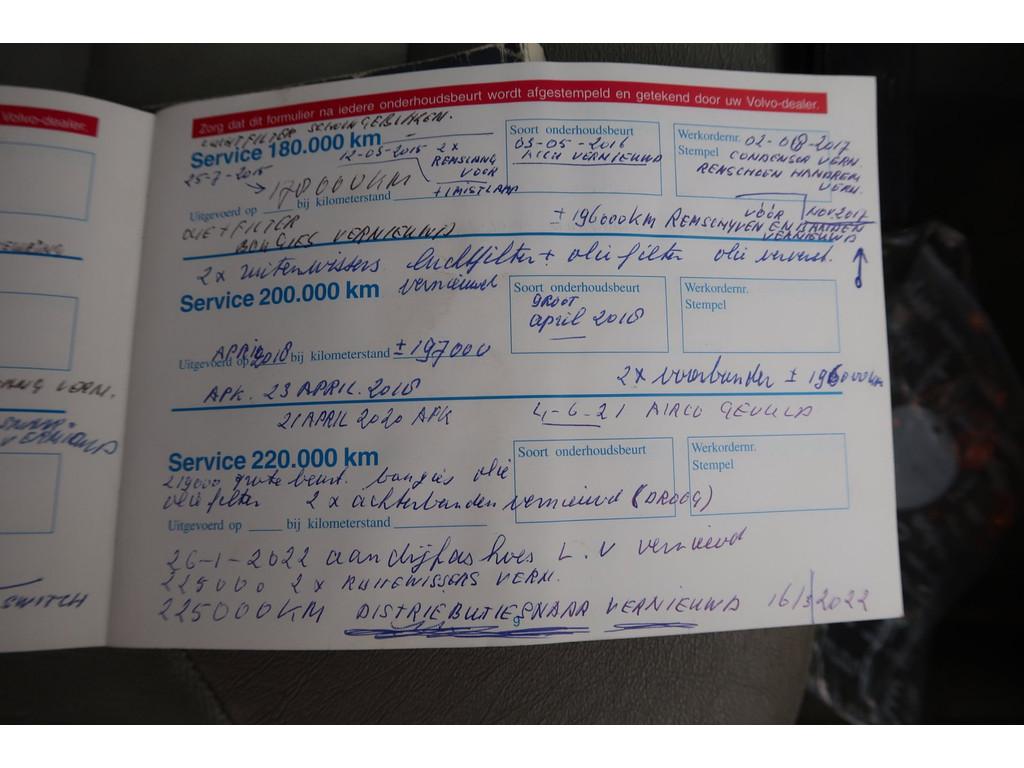 Volvo-dealer.
Zorg dat dit formulier na iedere onderhoudsbeurt wordt afgestempeld en getekend door uw Volvo-dealer.
Service 180.000 km
12-05-2015
2x
REMSLANG
VOOR
+ 1 MISTLAMP
25-7-2015
178000KM
Uitgevoerd op ___ bij kilometerstand
OLIE + FILTER
BOUGIES VERNIEUWD
Soort onderhoudsbeurt
03-05-2016
VERNIEUWD
Werkordernr. 02-08-2017
Stempel CONDENSOR VERN.
REMSCHOEN HANDREM
VERN.
VÓÓR NOV 2017
± 196000KM REMSCHYVEN EN
VERNIEUWD
2x ruitenwissers luchtfilter + olie filter olie ververst.
vernieuwd
Service 200.000 km
Soort onderhoudsbeurt
GROOT
april 2018
Werkordernr.
Stempel
Uitgevoerd op APRIL 2018 bij kilometerstand ± 197000
APK. 23 APRIL. 2018
2x voorbanden ± 196000km
21 APRIL 2020 APK
4-6-21 AIRCO GEVULD
Service 220.000 km
Soort onderhoudsbeurt
Werkordernr.
Stempel
219000 grote beurt. bougies olie
olie filter 2 x achterbanden vernieuwd (DROOG)
Uitgevoerd op ___ bij kilometerstand
26-1-2022 aandijfas hoes L.V vernieuwd
225000. 2x RUITEWISSERS VERN.
225000KM DISTRIEBUTIESNAAR VERNIEUWD 16/3/2022
9
VERM.
VERNIEUWD
SWITCH